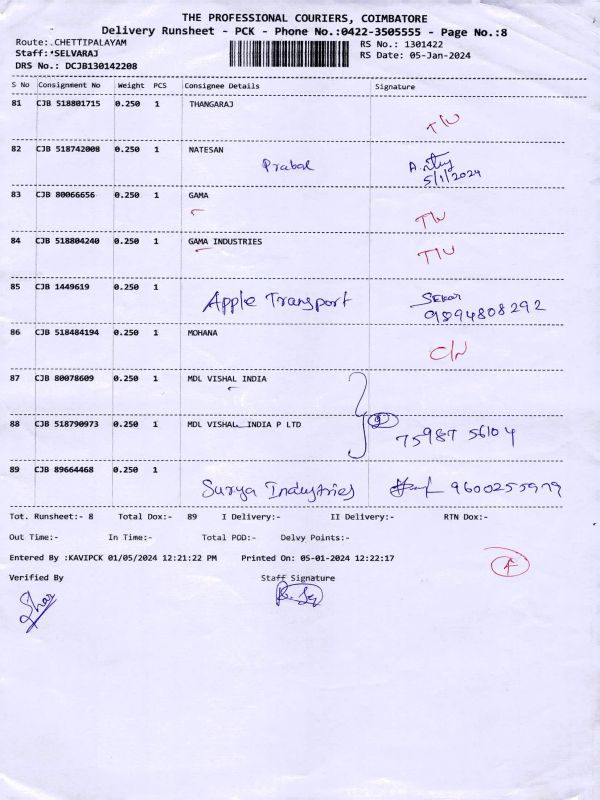 THE PROFESSIONAL COURIERS, COIMBATORE
Delivery Runsheet - PCK - Phone No.:0422-3505555 - Page No.:8
Route:.CHETTIPALAYAM
RS No.: 1301422
Staff:*SELVARAJ
RS Date: 05-Jan-2024
DRS No.: DCJB130142208
S No Consignment No Weight PCS Consignee Details Signature
81 CJB 518801715 0.250 1 THANGARAJ
82 CJB 518742008 0.250 1 NATESAN
Prabal
5/1/2024
83 CJB 80066656 0.250 1 GAMA
84 CJB 518804240 0.250 1 GAMA INDUSTRIES
85 CJB 1449619 0.250 1
Apple Transport Sekar
9894808292
86 CJB 518484194 0.250 1 MOHANA
87 CJB 80078609 0.250 1 MDL VISHAL INDIA
88 CJB 518790973 0.250 1 MDL VISHAL INDIA P LTD
2
75987 56104
89 CJB 89664468 0.250 1
Surya Industries 9600255979
Tot. Runsheet:- 8 Total Dox:- 89 I Delivery:- II Delivery:- RTN Dox:-
Out Time:- In Time:- Total POD:- Delvy Points:-
Entered By :KAVIPCK 01/05/2024 12:21:22 PM Printed On: 05-01-2024 12:22:17
Verified By Staff Signature